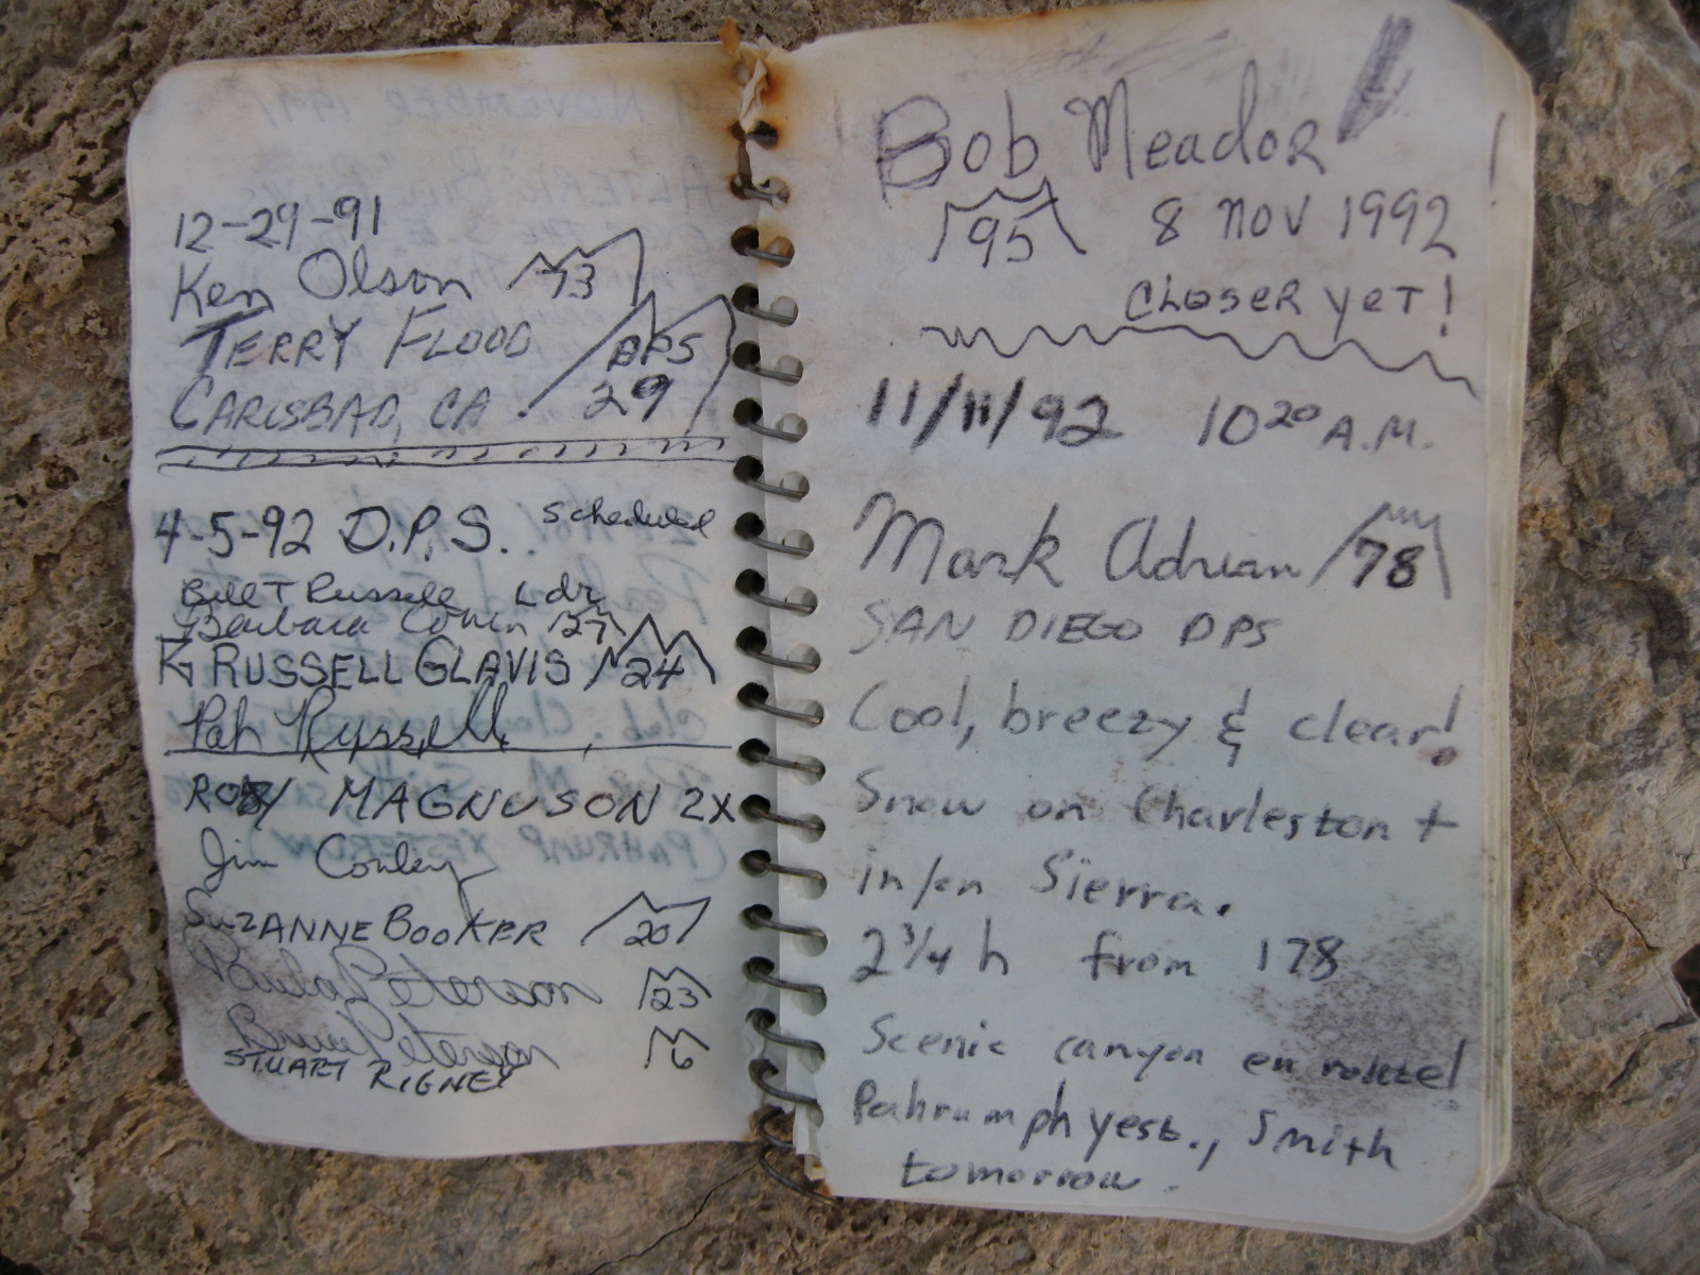 12-29-91
Ken Olson 73
TERRY FLOOD DPS
CARLSBAD, CA. 29
4-5-92 D.P.S. Scheduled
Bill T Russell Ldr
Barbara Cohen 27
RUSSELL GLAVIS 24
Pat Russell
MAGNUSON 2X
Jim Conley
SUZANNE BOOKER 20
Paula Peterson 23
Bruce Peterson 6
STUART RIGNEY
Bob Meador
95 8 NOV 1992
CLOSER YET!
11/11/92 10 20 A.M.
Mark Adrian 78
SAN DIEGO DPS
Cool, breezy & clear!
Snow on Charleston +
in/on Sierra.
2 3/4 h from 178
Scenic canyon en route!
Pahrumph yest., Smith
tomorrow.